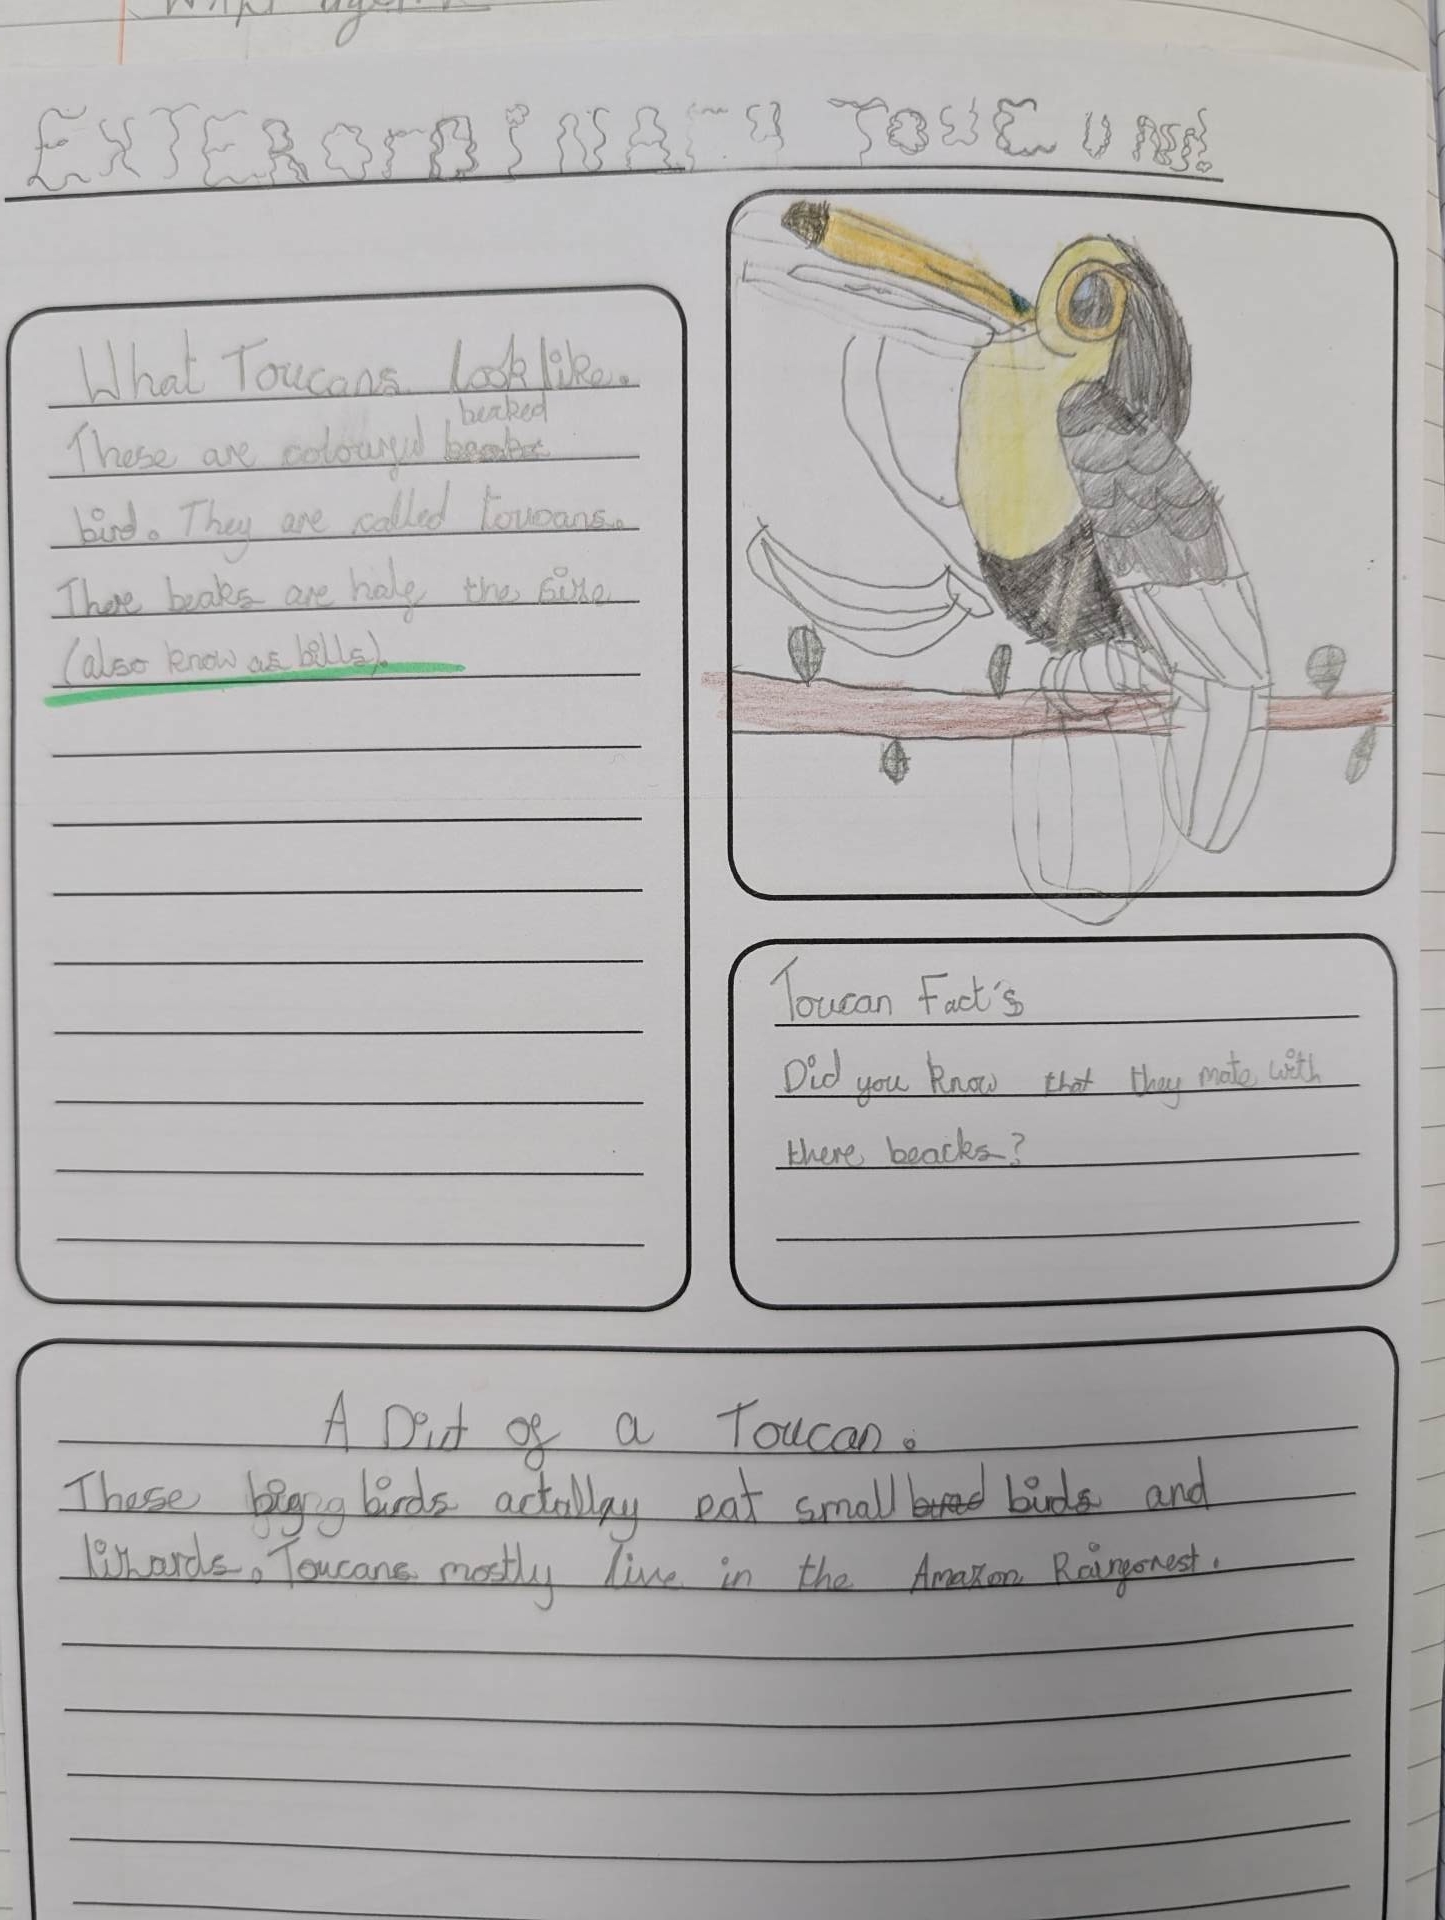 EXTERORDINARY TOUCUN!
What Toucans look like.
beaked
These are coloured
bird. They are called toucans.
There beaks are half the size
(also know as bills).
Toucan Fact's
Did you know that they mate with
there beacks?
A Diut of a Toucan.
These birds actullay eat small birds and
lizards. Toucans mostly live in the Amazon Rainforest.